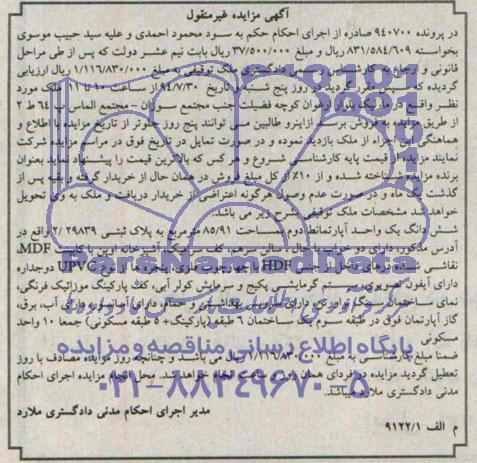 آگهی مزایده غیرمنقول
در پرونده ۹۴۰۷۰۰ صادره از اجرای احکام حکم به سود محمود احمدی و علیه سید حبیب موسوی
بخواسته ۸۳۱/۵۸۴/۶۰۹ ریال و مبلغ ۳۷/۵۰۰/۰۰۰ ریال بابت نیم عشر دولت که پس از طی مراحل
قانونی و ارجاع به کارشناس رسمی دادگستری ملک توقیفی به مبلغ ۱/۱۱۶/۸۳۰/۰۰۰ ریال ارزیابی
گردیده که سپس مقرر گردید در روز پنج شنبه از تاریخ ۹۴/۷/۳۰ از ساعت ۱۰ تا ۱۱ ملک مورد
نظر واقع در مارلیک بلوار ارغوان کوچه فضیلت جنب مجتمع سوزان - مجتمع الماس پ ۶۴ ط ۲
از طریق مزایده به فروش برسد ازاینرو طالبین می توانند پنج روز جلوتر از تاریخ مزایده با اطلاع و
هماهنگی این اجراء از ملک بازدید نموده و در صورت تمایل در تاریخ فوق در مراسم مزایده شرکت
نمایند مزایده از قیمت پایه کارشناسی شروع و هر کس که بالاترین قیمت را پیشنهاد نماید بعنوان
برنده مزایده شناخته شده و از ۱۰٪ از کل مبلغ فروش در همان حال از خریدار گرفته و بقیه پس از
گذشت یک ماه و در صورت عدم وصول هرگونه اعتراضی از خریدار دریافت و ملک به وی تحویل
خواهد شد مشخصات ملک توقیفی بشرح زیر می باشد.
شش دانگ یک واحد آپارتمان ط دوم مساحت ۸۵/۹۱ مترمربع به پلاک ثبتی ۲/۲۹۸۳۹ واقع در
آدرس مذکور، دارای دو خواب با حال و سالن سرهم، کف سرامیک، آشپزخانه اپن با کابینت MDF،
نقاشی شده درهای داخل از جنس HDF با چهارچوب فلزی، پنجره ها از نوع UPVC دوجداره
دارای آیفون تصویری، سیستم گرمایشی پکیج و سرمایش کولر آبی، کف پارکینگ موزائیک فرنگی،
نمای ساختمان سنگ تراورتن، دارای سرویس بهداشتی و حمام، دارای آسانسور، دارای آب، برق،
گاز آپارتمان فوق در طبقه سوم یک ساختمان ۶ طبقه (پارکینگ+۵ طبقه مسکونی) جمعا ۱۰ واحد
مسکونی
ضمنا مبلغ کارشناسی به مبلغ ۱/۱۱۶/۸۳۰/۰۰۰ ریال می باشد و چنانچه روز مزایده مصادف با روز
تعطیل گردید مزایده در فردای همان روز و ساعت انجام خواهد شد. محل انجام مزایده اجرای احکام
مدنی دادگستری ملارد میباشد.
مدیر اجرای احکام مدنی دادگستری ملارد
م الف ۹۱۲۲/۱
ParsNamadData
پایگاه اطلاع رسانی مناقصه و مزایده
۰۲۱-۸۸۳۴۹۶۷۰-۵